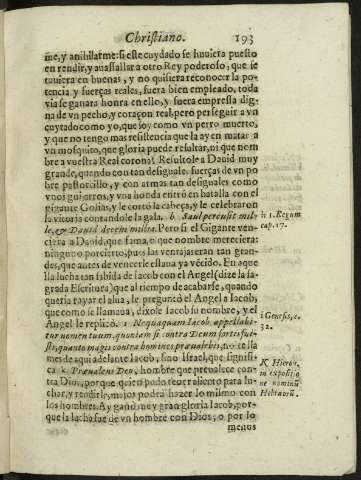 Christiano. 193
me, y anihilarme: si este cuydado se huviera puesto
en rendir, y auassallar a otro Rey poderoso, que se
tuuiera en buenas, y no quisiera reconocer la po-
tencia y fuerças reales, fuera bien empleado, toda
via se ganara honra en ello, y fuera empressa dig-
na de vn pecho, y coraçon real, pero perseguir a vn
cuytado como yo, que soy como vn perro muerto,
y que no tengo mas resistencia que la ay en matar a
vn mosquito, que gloria puede resultar, ni que nom
bre a vuestra Real corona? Resultole a Dauid muy
grande, quando con tan desiguales fuerças de vn po
bre pastorcillo, y con armas tan desiguales como
vnos guijarros, y vna honda entrò en batalla con el
gigante Golias, y le cortò la cabeça, y le celebraron
la vitoria contandole la gala. h Saul percussit mil-
le, & Dauid decem millia. Pero si el Gigante ven-
ciera a Dauid, que fama, o que nombre mereciera?
ninguno por cierto, pues las ventajas eran tan gran-
des, que antes de vencerle estaua ya vēcido. En aque
lla lucha tan sabida de Iacob con el Angel (dize la sa-
grada Escritura) que al tiempo de acabarse, quando
queria rayar el alua, le preguntò el Angel a Iacob,
que como se llamaua, dixole Iacob su nombre, y el
Angel le replicò. i Nequaquam Iacob appellabi-
tur nomen tuum, quoniam si contra Deum fortis fui-
sti, quanto magis contra homines præualebis, no te lla
mes de aqui adelante Iacob, sino Israel, que signifi-
ca k Præualens Deo, hombre que preualece con-
tra Dios, porque quien pudo tener aliento para lu-
char, y rendirlo, mejor podrà hazer lo mismo con
los hombres. Ay ganò muy gran gloria Iacob, por-
que la lucha fue de vn hombre con Dios, o por lo
menus
h 1. Regum
cap. 17.
i Genesis, c.
32.
K Hieron.
in expositio
ne nominū
Hebraorū.